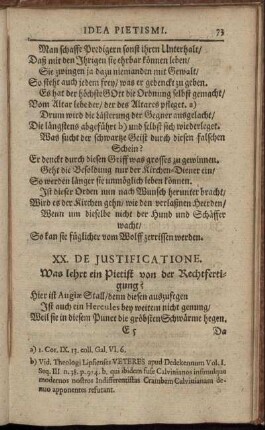 IDEA PIETISMI. 73
Man schaffe Predigern sonst ihren Unterhalt/
Daß mit den Ihrigen sie ehrbar können leben/
Sie zwingen ja dazu niemanden mit Gewalt/
So steht auch jedem frey/ was er gedenckt zu geben.
Es hat der höchste GOtt die Ordnung selbst gemacht/
Vom Altar lebe der/ der des Altares pfleget. a)
Drum wird die Lästerung der Gegner ausgelacht/
Die längstens abgeführt b) und selbst sich wiederleget.
Was sucht der schwartze Geist durch diesen falschen
Schein?
Er denckt durch diesen Griff was grosses zu gewinnen.
Geht die Besoldung nur der Kirchen-Diener ein/
So werden länger sie unmöglich leben können.
Ist dieser Orden nun nach Wunsch herunter bracht/
Wird es der Kirchen gehn/ wie den verlaßnen Heerden/
Wenn um dieselbe nicht der Hund und Schäffer
wacht/
So kan sie füglicher vom Wolff zerrissen werden.
XX. DE JUSTIFICATIONE.
Was lehrt ein Pietist von der Rechtferti-
gung?
Hier ist Augiæ Stall/ denn diesen auszufegen
Ist auch ein Hercules bey weitem nicht genung/
Weil sie in diesem Punct die gröbsten Schwärme hegen.
E 5 Da
a) 1. Cor. IX. 13. coll. Gal. VI. 6.
b) Vid. Theologi Lipsienses VETERES apud Dedekennum Vol. I.
Seq. III. n. 38. p. 914. b, qui ibidem fuse Calvinianos insimulque
modernos nostros Indifferentistas Crambum Calvinianam de-
nuo apponentes refutant.